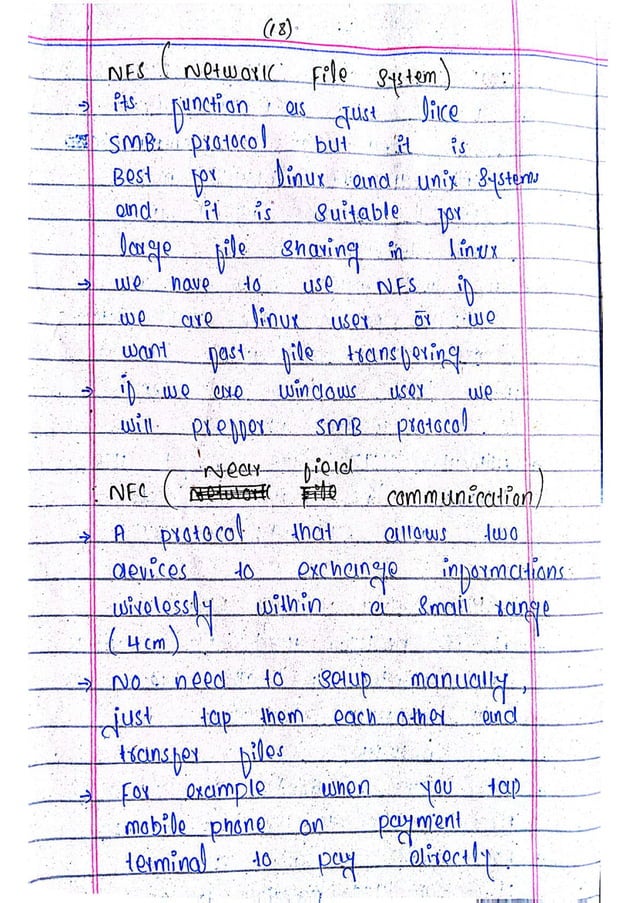 (18)
NFS (Network File System)
→ its function as just like
SMB protocol but it is
Best for linux and unix systems
and it is suitable for
large file sharing in linux
→ we have to use NFS if
we are linux user or we
want fast file transfering
→ if we are windows user we
will preffer SMB protocol
Near field
NFC (Network File communication)
→ A protocol that allows two
devices to exchange informations
wirelessly within a small range
(4cm)
→ No need to setup manually,
just tap them each other and
transfer files
→ For example when you tap
mobile phone on payment
terminal to pay directly.